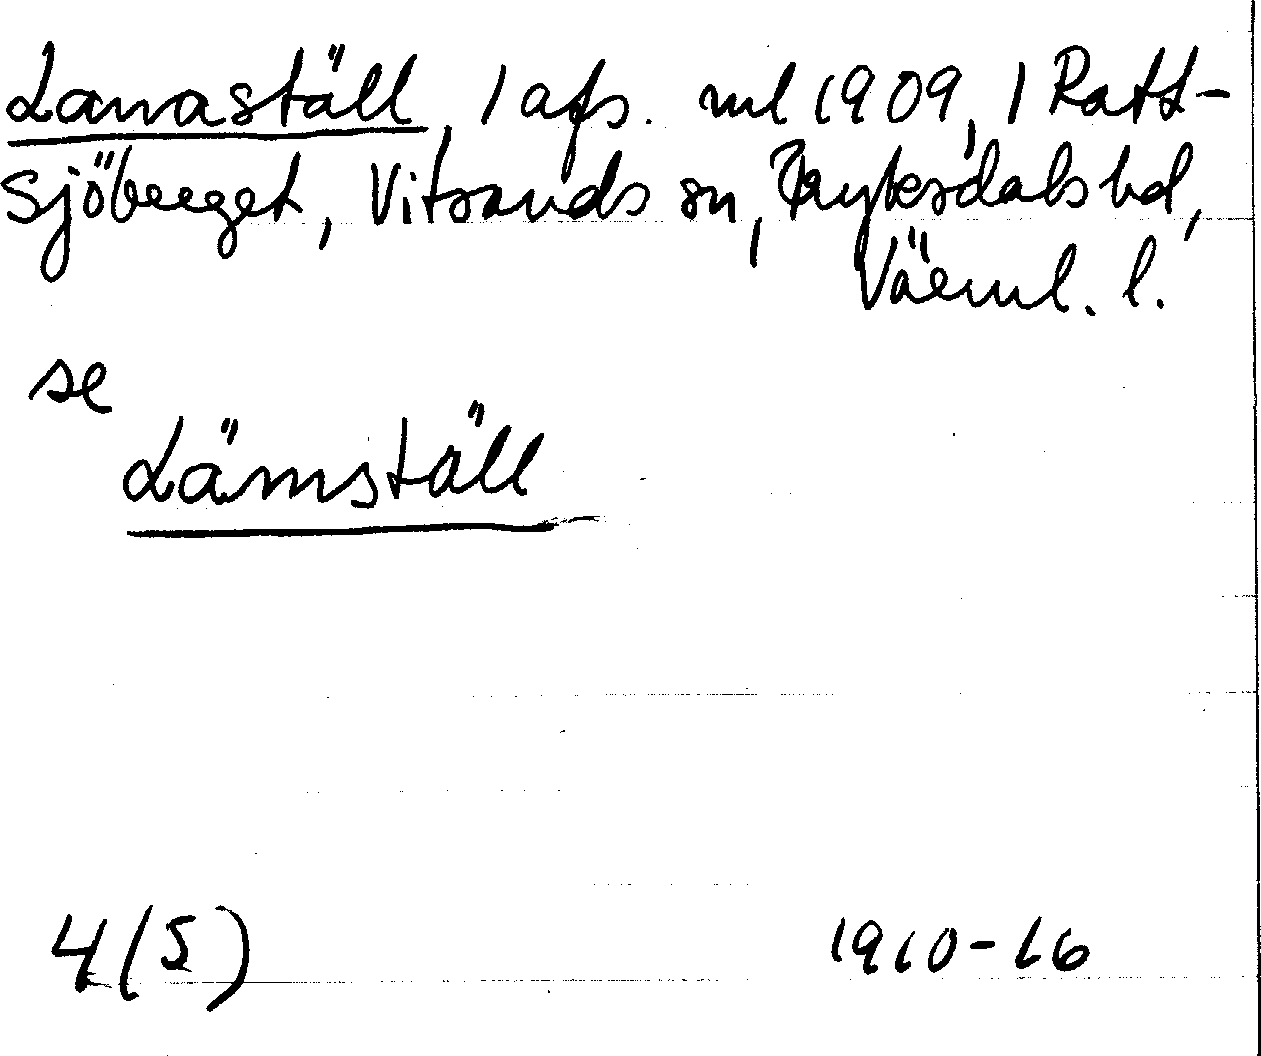 Lamaställ, 1 afs. ml 1909, 1 Ratt-
sjöberget, Vitsands sn, Fryksdals hd,
Värml. l.
se
Lämställ
4(5) 1910-16